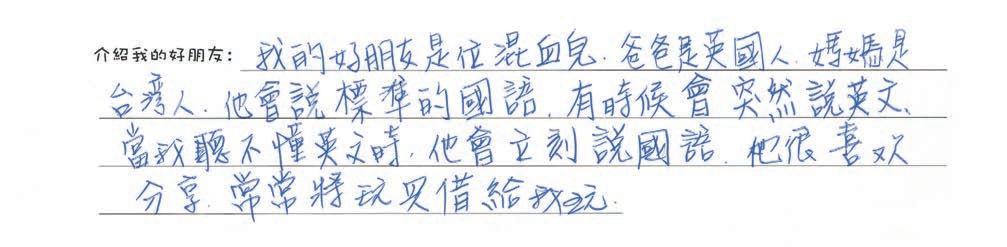 介紹我的好朋友：我的好朋友是位混血兒.爸爸是英國人.媽媽是
台灣人.他會說標準的國語.有時候會突然說英文、
當我聽不懂英文時.他會立刻說國語.他很喜欢
分享.常常將玩具借給我玩.